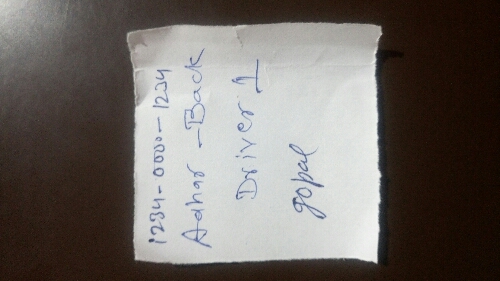 1234-0000-1234
Adhar - Back
Driver 1
gopal